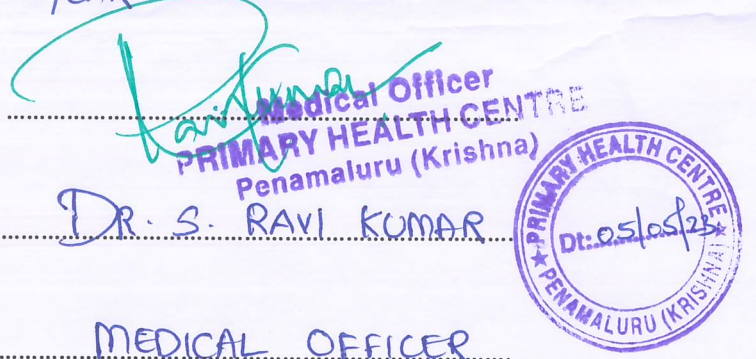 Ravi Kumar
Medical Officer
PRIMARY HEALTH CENTRE
Penamaluru (Krishna)
DR. S. RAVI KUMAR
PRIMARY HEALTH CENTRE
Dt: 05/05/23
★ PENAMALURU (KRISHNA) ★
MEDICAL OFFICER